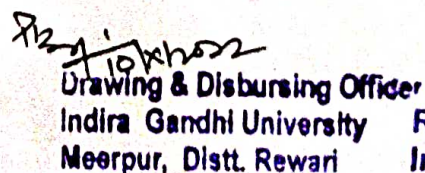 10/X/2022
Drawing & Disbursing Officer
Indira Gandhi University R
Meerpur, Distt. Rewari In